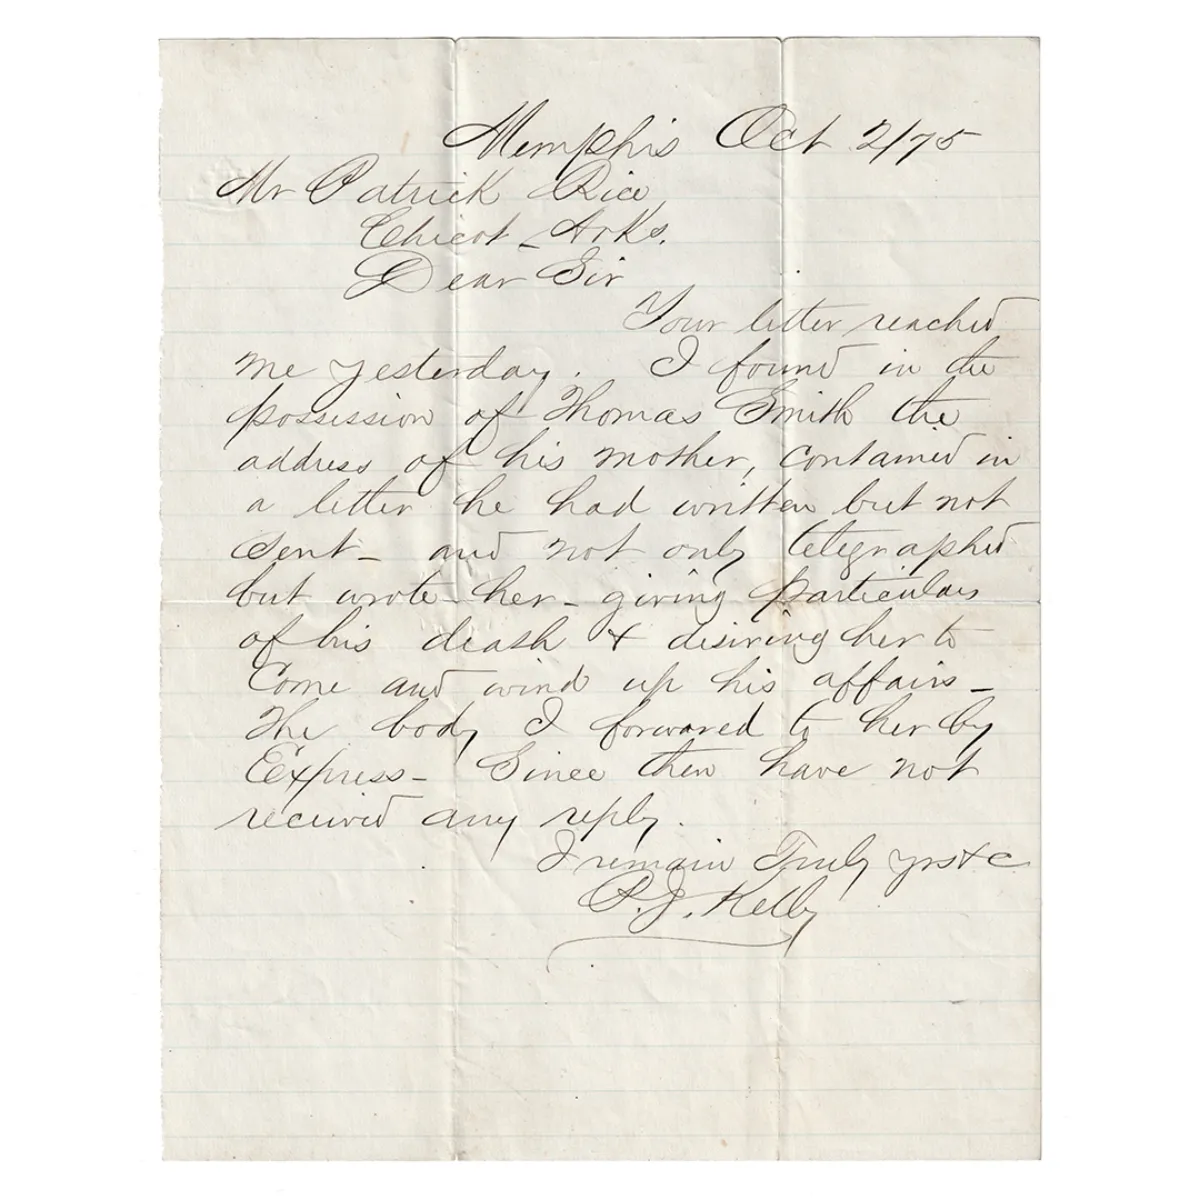 Memphis Oct 2/75
Mr Patrick Rice,
Chicot - Arks.
Dear Sir
Your letter reached
me yesterday. I found in the
possession of Thomas Smith the
address of his mother, contained in
a letter he had written but not
sent - and not only telegraphed
but wrote her - giving particulars
of his death & desiring her to
Come and wind up his affairs -
The body I forwared to her by
Express - Since then have not
received any reply.
I remain Truly yrs &c
P. J. Kelly